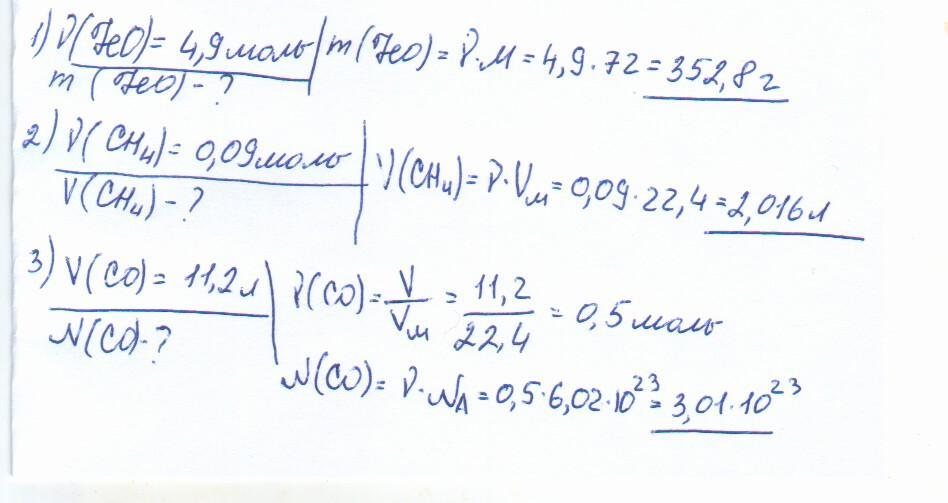 1) ν(FeO) = 4,9 моль m(FeO) = ν·M = 4,9·72 = 352,8 г
m (FeO) - ?
2) ν(CH₄) = 0,09 моль V(CH₄) = ν·Vм = 0,09·22,4 = 2,016 л
V(CH₄) - ?
3) V(CO) = 11,2 л ν(CO) = V/Vм = 11,2/22,4 = 0,5 моль
N(CO) - ?
N(CO) = ν·NA = 0,5·6,02·10²³ = 3,01·10²³